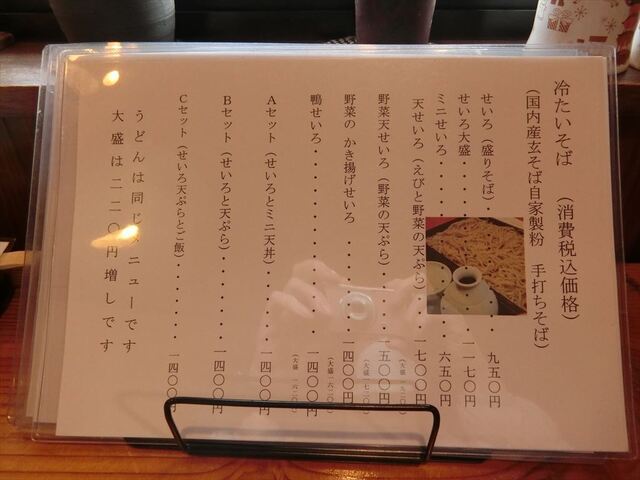 冷たいそば　(消費税込価格)
(国内産玄そば自家製粉　手打ちそば)
せいろ(盛りそば)・・・・・・九五〇円
せいろ大盛・・・・・・一一七〇円
ミニせいろ・・・・・・六五〇円
天せいろ(えびと野菜の天ぷら)・・一七〇〇円
(大盛 一九二〇)
野菜天せいろ(野菜の天ぷら)・・・・一五〇〇円
(大盛 一七二〇)
野菜の かき揚げせいろ ・・・・・・一四〇〇円
(大盛 一六二〇)
鴨せいろ・・・・・・・・・・一四〇〇円
(大盛 一六二〇)
Aセット(せいろとミニ天丼)・・・・一四〇〇円
Bセット(せいろと天ぷら)・・・・・一四〇〇円
Cセット(せいろ天ぷらとご飯)・・・・一四〇〇円
うどんは同じメニューです
大盛は二二〇円増しです